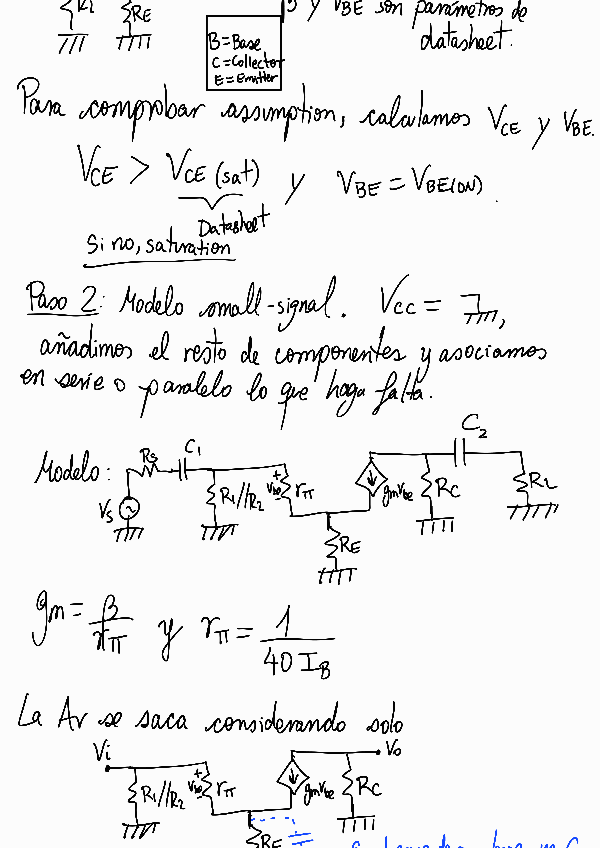 RE
y VBE son parámetros de
datasheet.
B=Base
C=Collector
E=Emitter
Para comprobar assumption, calculamos VCE y VBE.
VCE > VCE (sat) y VBE = VBE(ON)
Datasheet
Si no, saturation
Paso 2: Modelo small-signal. Vcc =
añadimos el resto de componentes y asociamos
en serie o paralelo lo que haga falta.
Modelo:
Vs RS C1 R1//R2 + vbe rπ RE gmvbe RC C2 RL
gm = β/rπ y rπ = 1/40 IB
La Av se saca considerando solo
Vi R1//R2 + vbe rπ RE gmvbe RC Vo